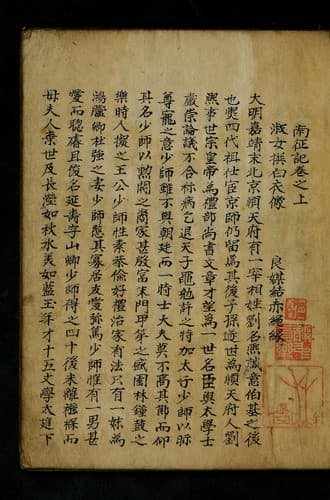 南征記卷之上
淑女撰白衣像 良媒結赤繩緣
大明嘉靖末北京順天府有一宰相姓劉名熙誠意伯基之後
也奕四代祖仕宦京師仍留爲其後子孫遂世爲順天府人劉
熙事世宗皇帝爲禮部尙書文章才望爲一世名臣與太學士
嚴崇論議不合移病乞退天子罷勉許之特加太子少師以示
尊寵之意少師雖不與朝廷而一時士大夫莫不高其節而仰
其名少師以勳閥之裔家甚殷富末門甲第之盛園林鍾鼓之
樂時人擬之王公少師性素恭儉好禮治家有法只有一妹爲
鴻臚卿杜强之妻少師愍其寡居友愛彌篤少師惟有一男甚
愛而聰睿且俊名延壽字山卿少師得之四十後未離襁褓而
母夫人棄世及長瀅如秋水美如藍玉年才十五文學大進下